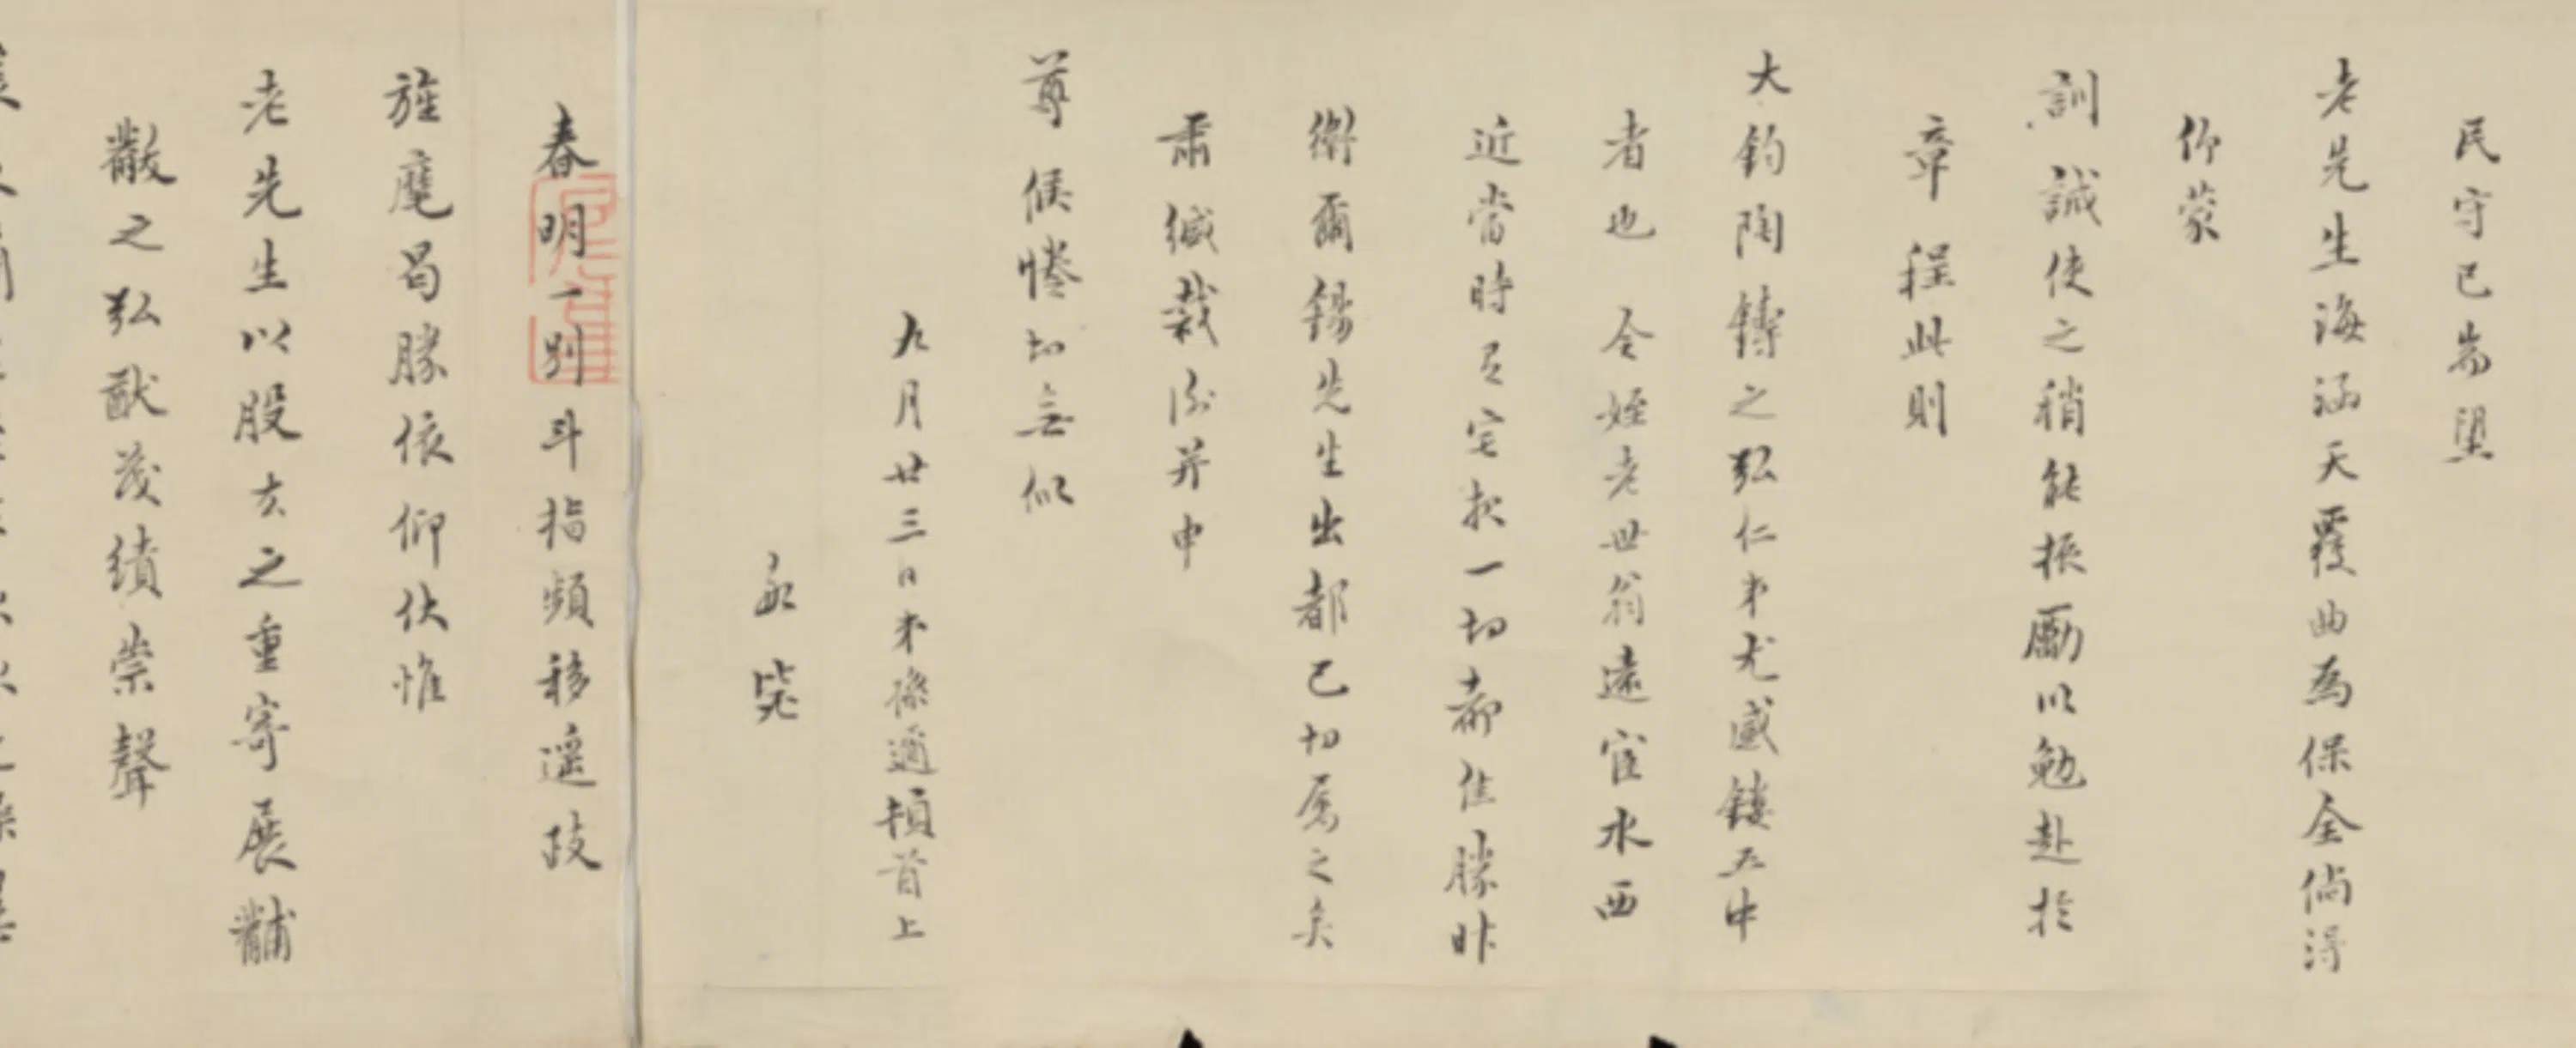 民守已耑望
老先生海涵天覆曲為保全倘得
仰蒙
訓誡使之稍能振勵以勉赴於
章程此則
大鈞陶鑄之弘仁弟尤感鏤五中
者也 令姪老世翁遠宦水西
近當時宅報一切都佳勝昨
衡爾錫先生出都已切屬之矣
肅緘裁附并申
尊候惓切無似
九月廿三日弟孫適頓首上
春明一別斗指頻移遙跂
旌麾曷勝依仰伏惟
老先生以股肱之重寄展黼
黻之弘猷茂績崇聲